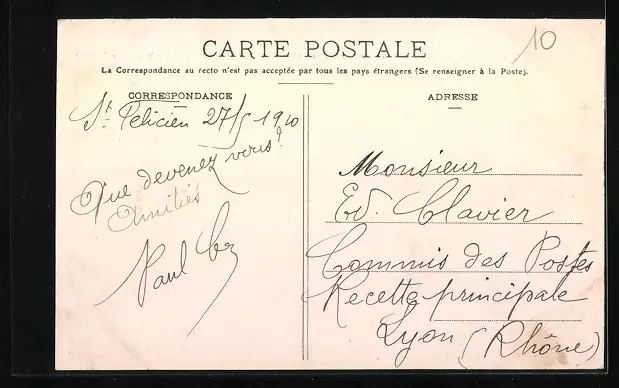 10
CARTE POSTALE
La Correspondance au recto n'est pas acceptée par tous les pays étrangers (Se renseigner à la Poste).
CORRESPONDANCE
St Félicien 27/5 1910
Que devenez vous?
Amitiés
Paul
ADRESSE
Monsieur
Ed. Clavier
Commis des Postes
Recette principale
Lyon (Rhône)